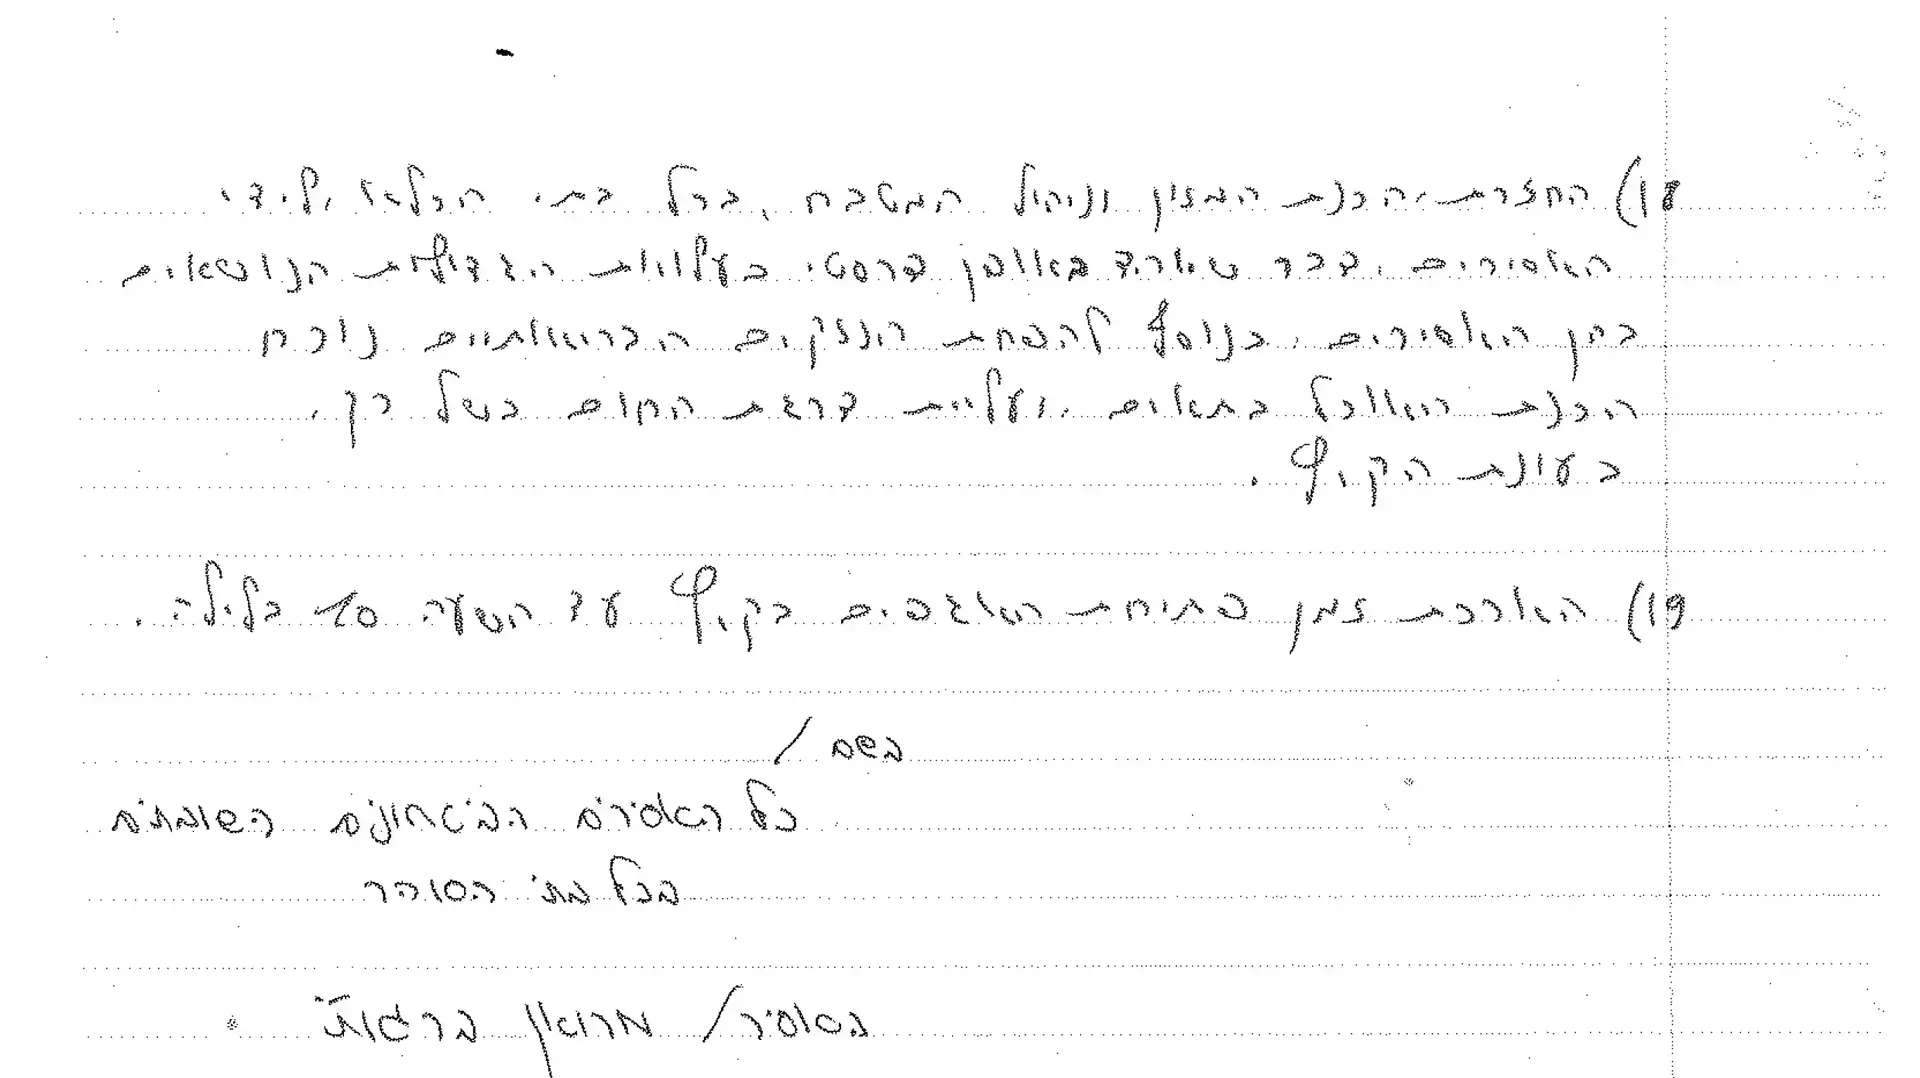 18) החזרת הכנת המזון וניהול המטבח, בכל בתי הכלא לידי
האסירים, דבר שיוריד באופן דרסטי בעלויות הגדולות הנושאים
בהן האסירים, בנוסף להפחת הנזקים הבריאותיים נוכח
הכנת האוכל בתאים, ועליית דרגת החום בשל כך,
בעונת הקיץ.
19) הארכת זמן פתיחת האגפים בקיץ עד השעה 10 בלילה.
בשם /
כל האסירים הביטחונים השוהים
בכל בתי הסוהר
האסיר / מרואן ברגותי